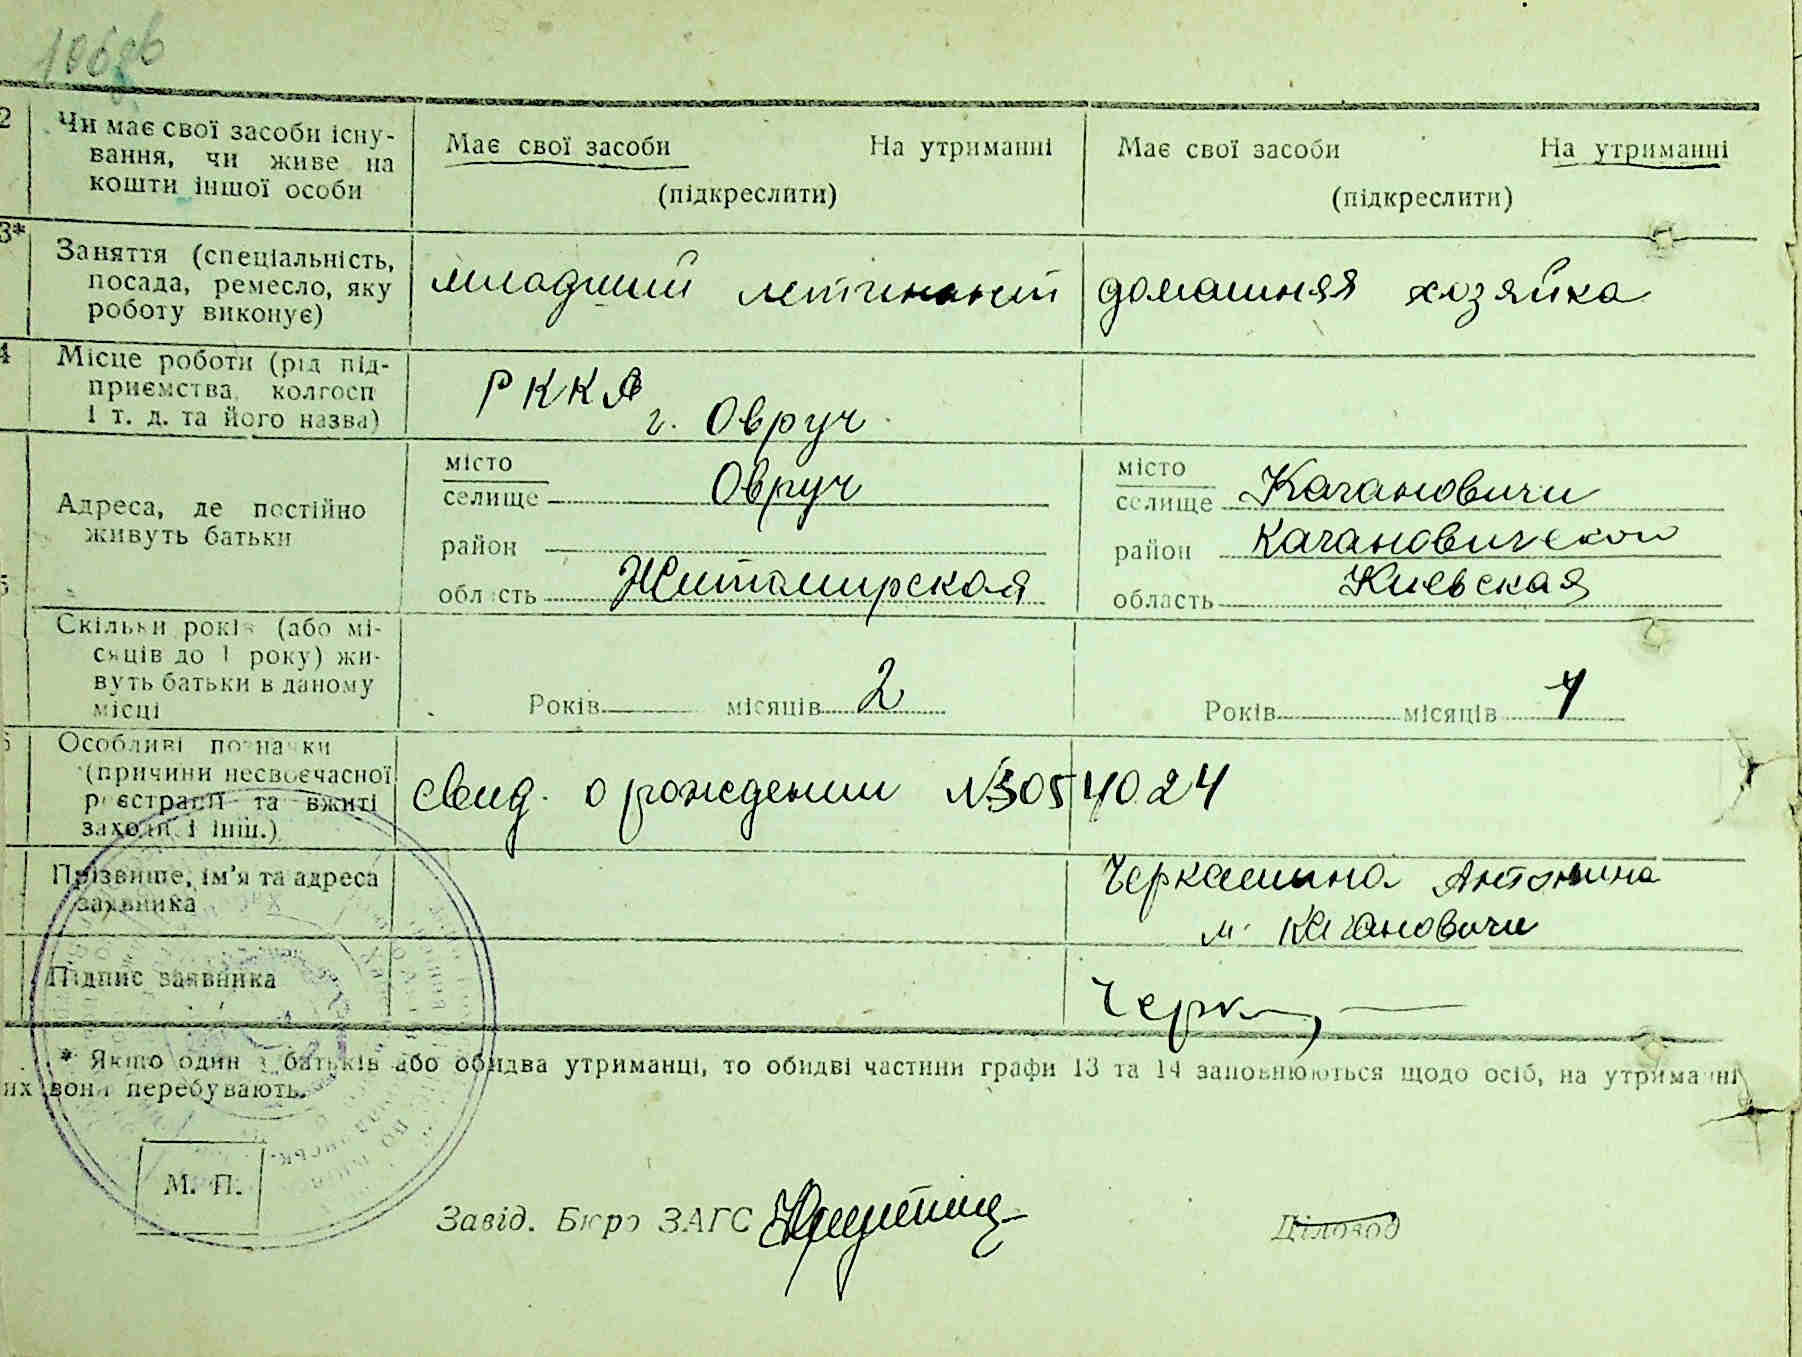 2 Чи має свої засоби існу-
вання, чи живе на
кошти іншої особи
Має свої засоби На утриманні
(підкреслити)
Має свої засоби На утриманні
(підкреслити)
3* Заняття (спеціальність,
посада, ремесло, яку
роботу виконує)
младший летинант
домашняя хозяйка
4 Місце роботи (рід під-
приємства, колгосп
і т. д. та його назва)
РККА
г. Овруч
Адреса, де постійно
живуть батьки
місто
селище Овруч
район
область Житомирская
місто
селище Кагановичи
район Кагановической
область Киевская
5
Скільки років (або мі-
сяців до 1 року) жи-
вуть батьки в даному
місці
Років місяців 2
Років місяців 4
6 Особливі позначки
(причини несвоєчасної
реєстрації та вжиті
заходи і інш.)
свид. о рождении №3054024
Прізвище, ім'я та адреса
заявника
Черкашина Антонина
м. Кагановичи
Підпис заявника
Черк
* Якщо один з батьків або обидва утриманці, то обидві частини графи 13 та 14 заповнюються щодо осіб, на утриманні
их вони перебувають.
М. П.
Завід. Бюро ЗАГС
Діловод